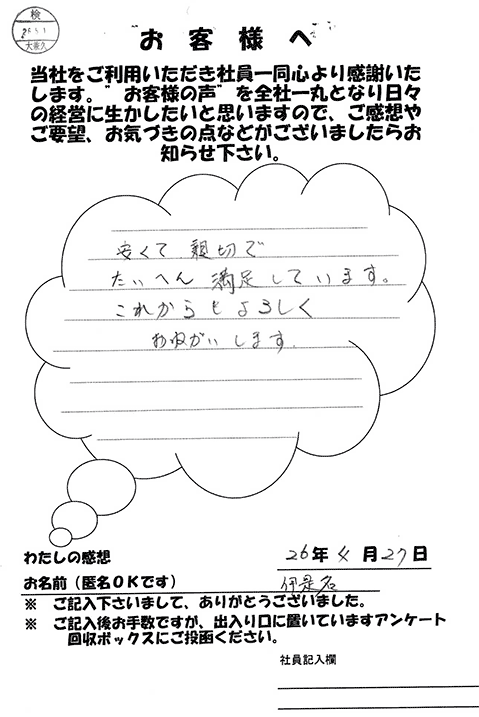 検
大兼久
お客様へ
当社をご利用いただき社員一同心より感謝いた
します。"お客様の声"を全社一丸となり日々
の経営に生かしたいと思いますので、ご感想や
ご要望、お気づきの点などがございましたらお
知らせ下さい。
安くて 親切で
たいへん 満足しています。
これからもよろしく
おねがいします。
わたしの感想
26年 4月 27日
お名前(匿名OKです)
伊是名
※ ご記入下さいまして、ありがとうございました。
※ ご記入後お手数ですが、出入り口に置いていますアンケート
回収ボックスにご投函ください。
社員記入欄